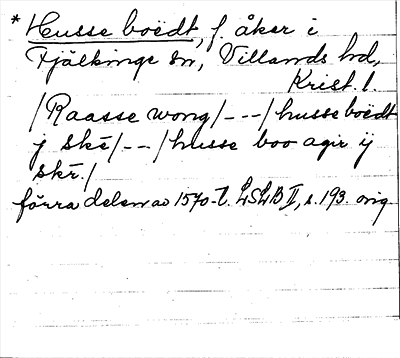 * Husse boëdt, f. åker i
Fjälkinge sn, Villands hd,
Krist. l.
/Raasse wong/---/husse boëdt
j skē/--/husse boo agir ij
skr̄./
förra delen av 1570-t. LSLB II, s. 193. orig.